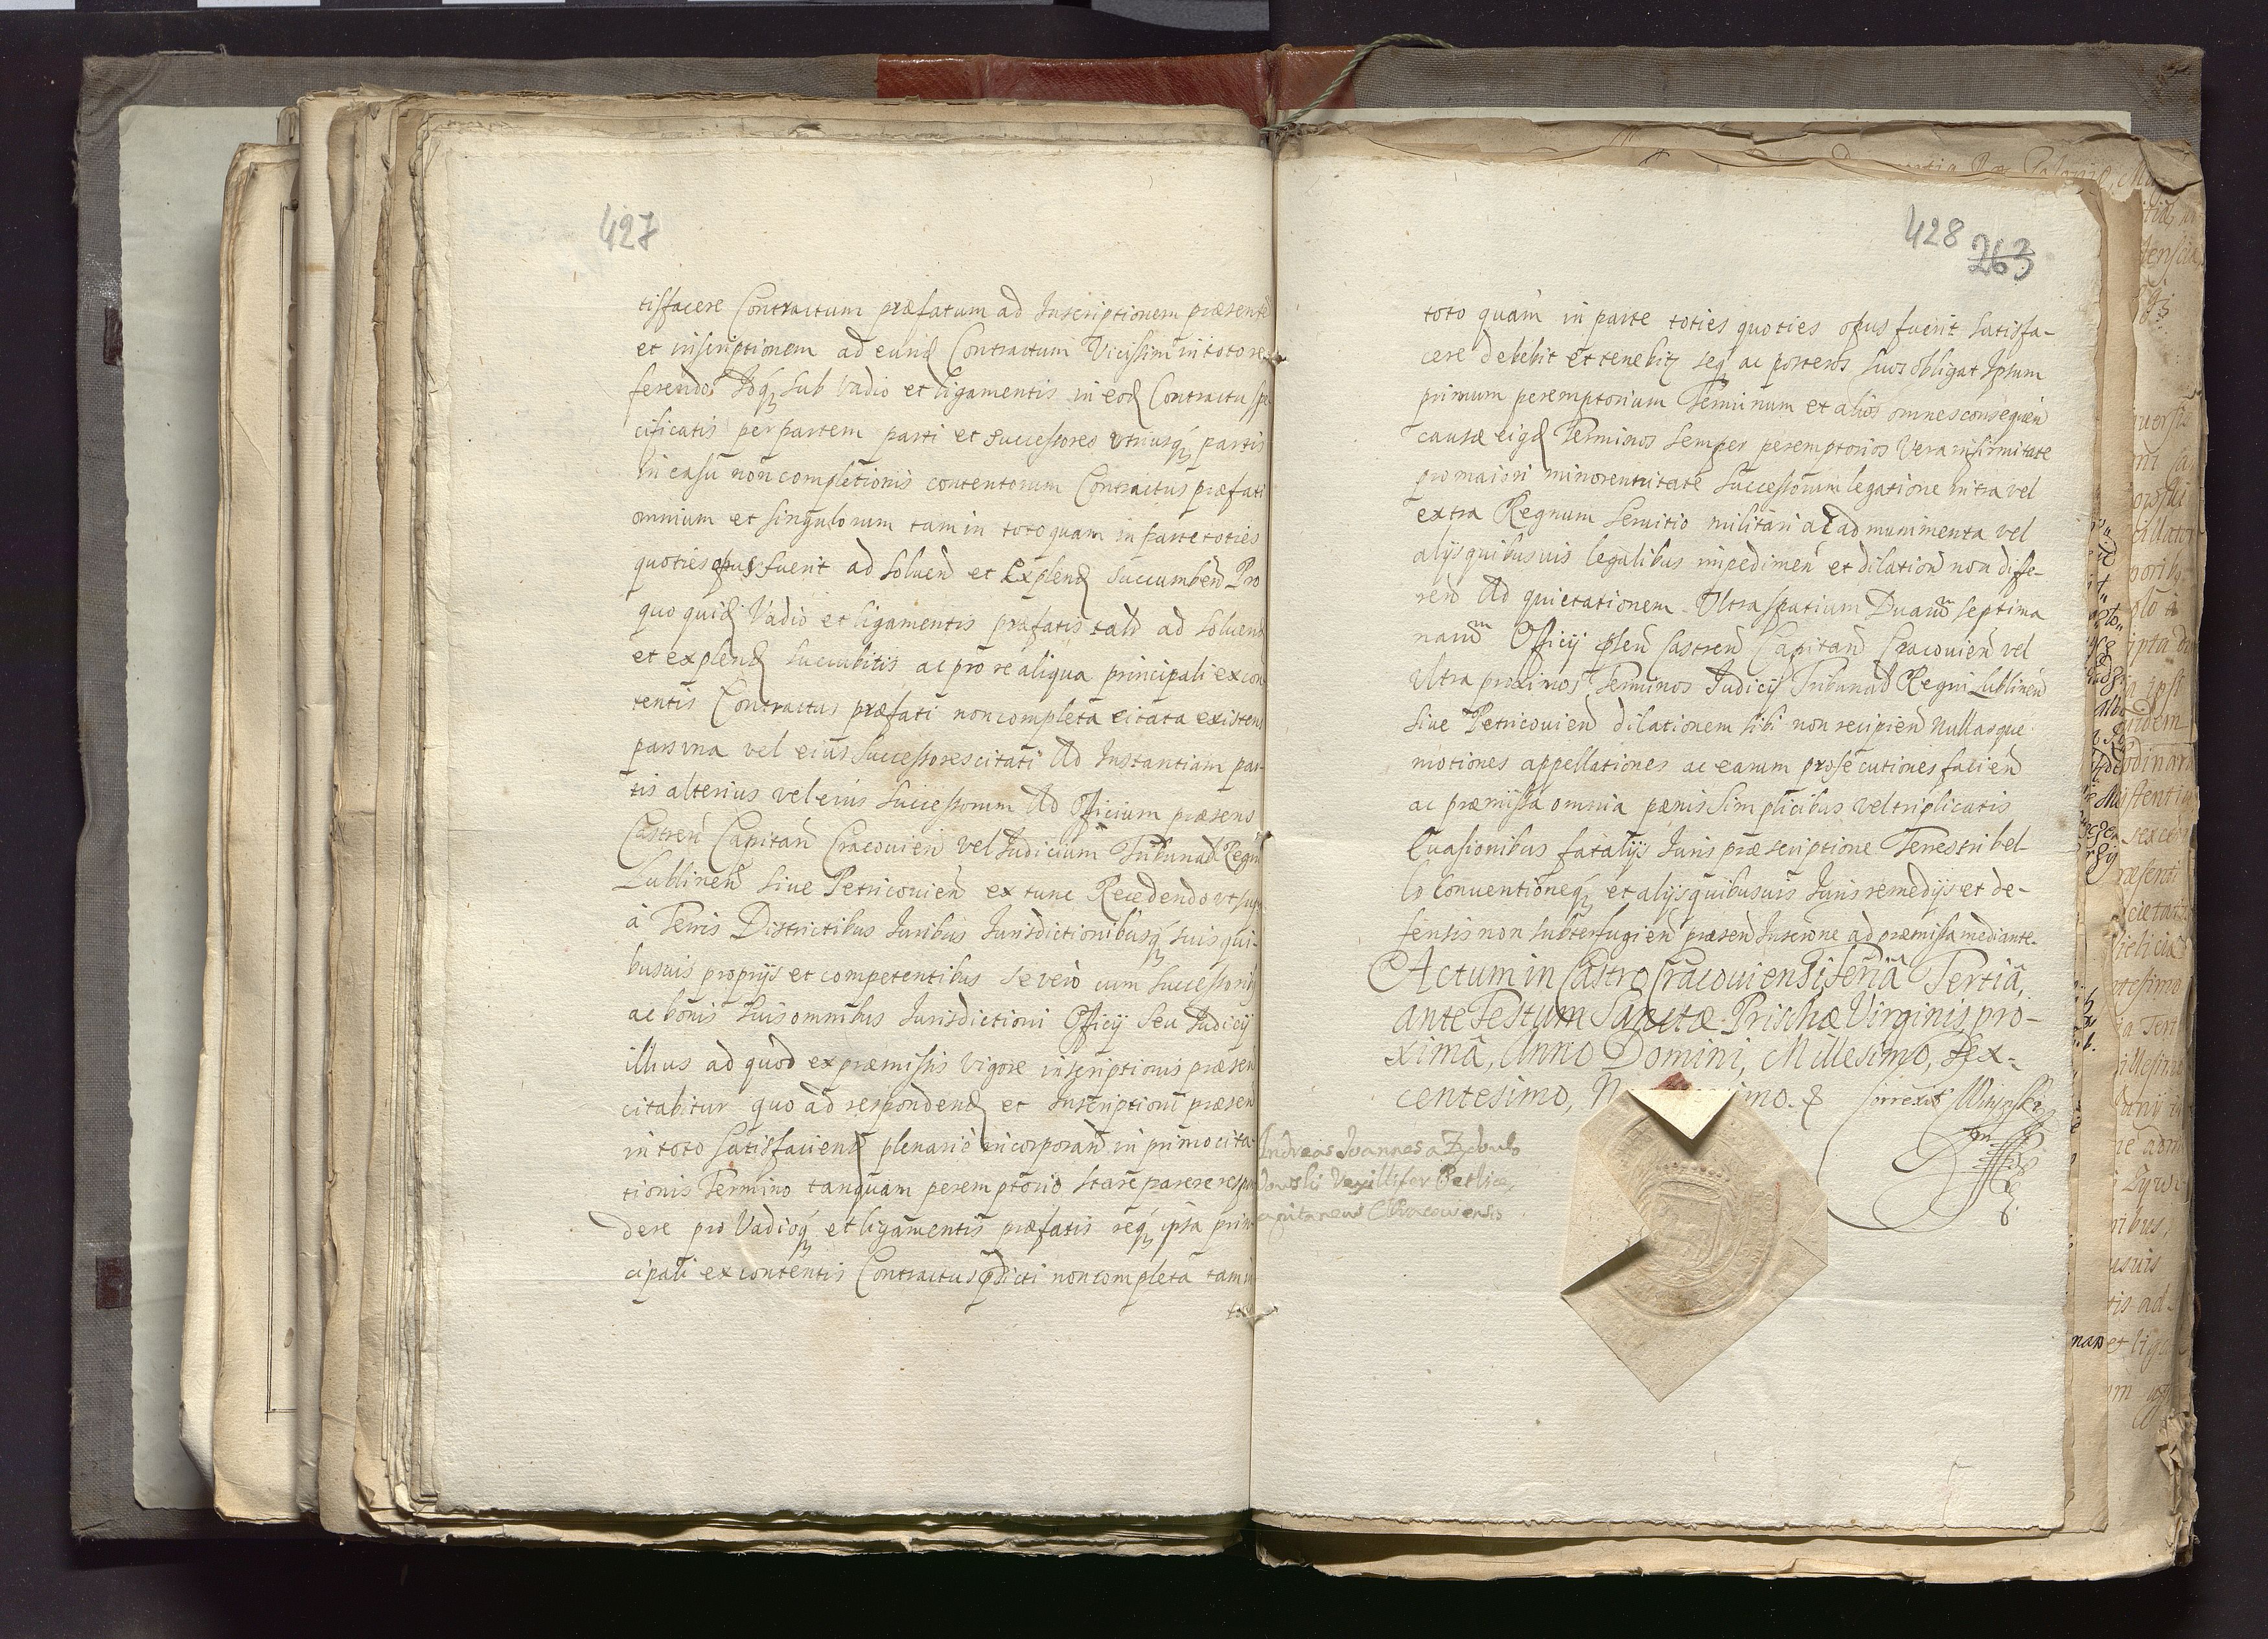 427
tisfacere Contractum præfatum ad Inscriptionem præsente
et inscriptionem ad eund Contractum Vicissim in toto re
ferendo Idq sub vadio et ligamentis in eod Contractu spe
cificatis per partem parti et successores vtriusq partis
in casu non completionis contentorum Contractus præfati
omnium et singulorum tam in toto quam in parte toties
quoties opus fuerit ad soluend et explend succumbend Pro
quo quid Vadio et ligamentis præfatis tald ad soluend
et explend succubitis ac pro re aliqua principali ex con
tentis Contractus præfati non completa citata existens
pars vna vel eius successores citati Ad Instantiam par-
tis alterius vel eius successorum Ad Officium præsens
Castren Capitan Cracouien vel Iudicium Tribunal Regni
Lublinen siue Petricouien ex tunc Recedendo vt supra
à Terris Districtibus Iuribus Iurisdictionibusq suis qui-
busuis proprijs et competentibus se vero cum successorib
ac bonis suis omnibus Iurisdictioni Officij seu Iudicij
illius ad quod ex præmissis vigore inscriptionis præsen
citabitur quo ad respondend et Inscriptioni præsen
in toto satisfaciend plenarie incorporand in primo cita-
tionis Termino tanquam peremptorio stare parere respon
dere pro Vadioq et ligamentis præfatis req ipsa prin-
cipali ex contentis Contractus pdicti non completa tam in
to
428
263
toto quam in parte toties quoties opus fuerit satisfa-
cere debebit et tenebitz seq ac posteros suos obligat Ipsum
primum peremptorium Terminum et alios omnes consequen
causæ eigd Terminos semper peremptorios Vera infirmitate
pro maiori minorentitate successorum legatione intra vel
extra Regnum seruitio militari ac ad munimenta vel
alijs quibusuis legalibus impedimen et dilation non diffe-
ren Ad quietationem Vltra spatium Duarum septima
narum Officij psen Castren Capitan Cracouien vel
Vltra proximos Terminos Iudicij Tribunal Regni Lublinen
siue Petricouien dilationem sibi non recipien nullasque
motiones appellationes ac earum prosecutiones facien
ac præmissa omnia pænis simplicibus vel triplicatis
Euasionibus fatalijs Iuris præscriptione Terrestri bel-
lo conuentioneq et alijs quibusuis Iuris remedijs et de-
fensis non subterfugien præsen Inscrione ad præmissa mediante.
Actum in Castro Cracouiensi feriâ Tertiâ,
ante Festum Sanctæ Priscæ Virginis pro-
ximâ, Anno Domini, Millesimo, sex-
centesimo,
Correxit
Andreas Joannes a Zebrzydo
Vexillifer Betliæ
apitaneus Cracouiensis